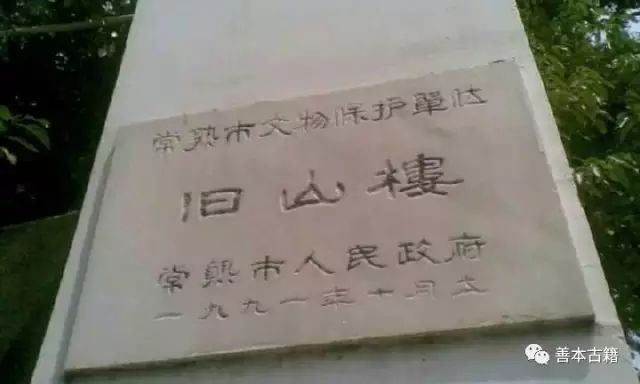 常熟市文物保护單位
旧山樓
常熟市人民政府
一九九一年十月立
善本古籍